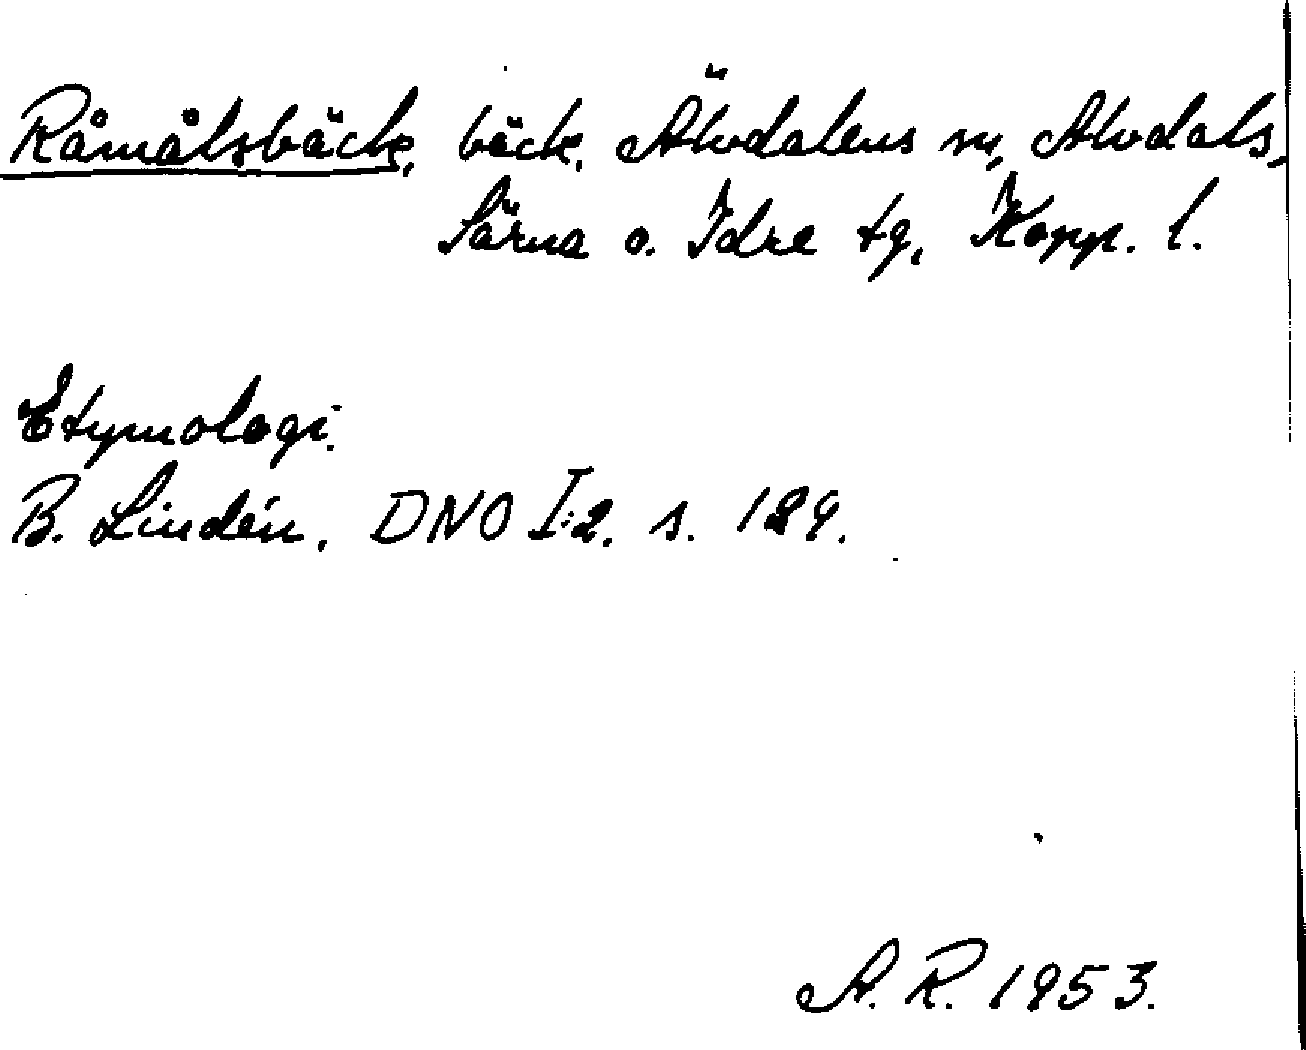 Råmålsbäck, bäck, Älvdalens sn, Älvdals,
Särna o. Idre tg, Kopp. l.
Etymologi.
B. Lindén, DNO I:2. s. 189.
A. R. 1953.